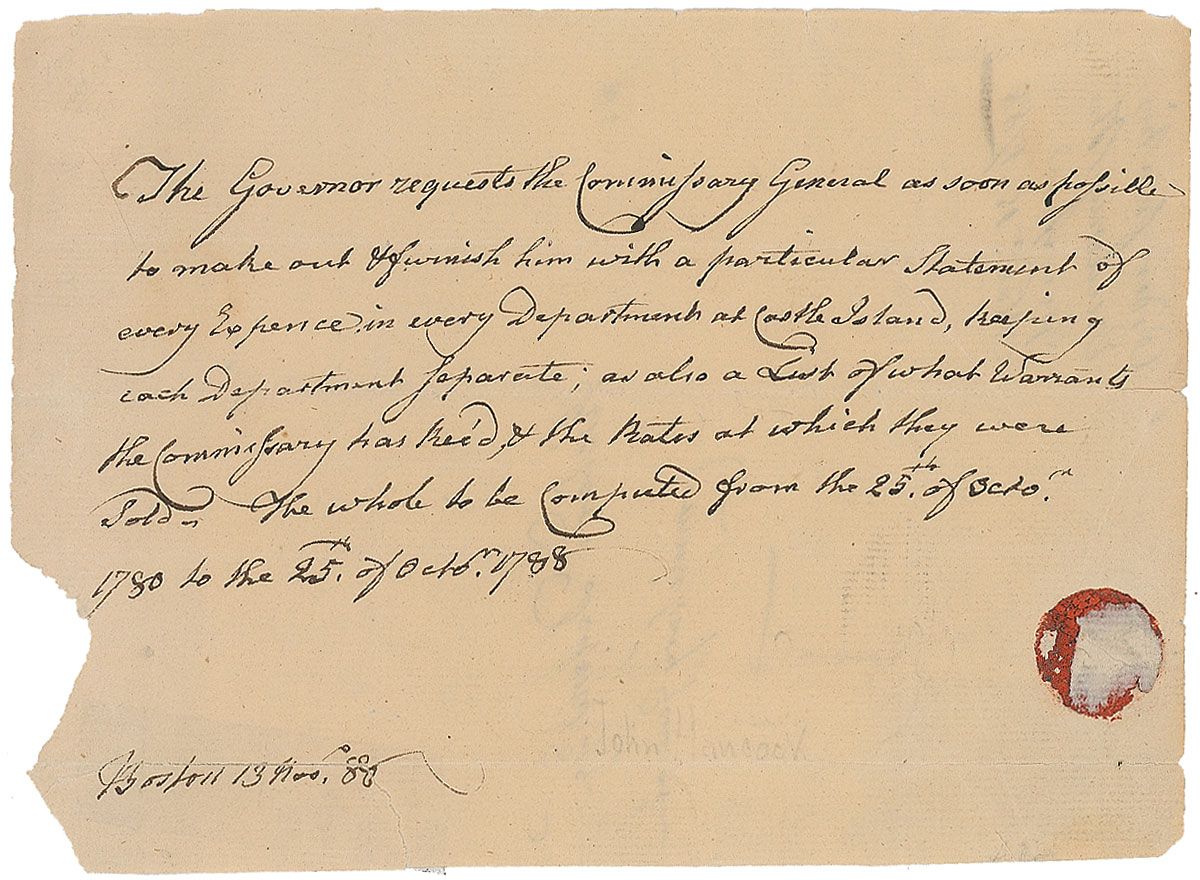 The Governor requests the Commissary General as soon as possible
to make out & furnish him with a particular Statement of
every Expence in every Department at Castle Island, keeping
each Department separate; as also a List of what Warrants
the Commissary has Rec'd, & the Rates at which they were
Sold. The whole to be computed from the 25th. of Octo.r
1780 to the 25th. of Octo.r 1788
Boston 13 Nov.o 88